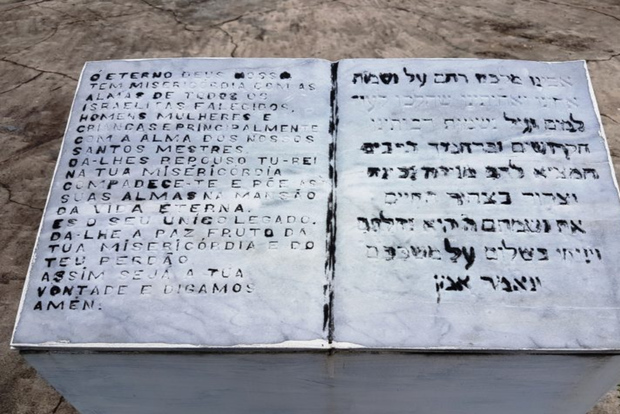 Ó ETERNO DEUS NOSSO
TEM MISERICÓRDIA COM AS
ALMAS DE TODOS OS
ISRAELITAS FALECIDOS,
HOMENS MULHERES E
CRIANÇAS E PRINCIPALMENTE
COM A ALMA DOS NOSSOS
SANTOS MESTRES.
DA-LHES REPOUSO TU-REI
NA TUA MISERICÓRDIA
COMPADECE-TE E PÕE AS
SUAS ALMAS NA MANSÃO
DA VIDA ETERNA.
ÉS O SEU ÚNICO LEGADO.
DA-LHE A PAZ FRUTO DA
TUA MISERICÓRDIA E DO
TEU PERDÃO
ASSIM SEJA A TUA
VONTADE E DIGAMOS
AMÉN.
אבינו מרבה רחם על נשמת
ועל נשמות
הקדושים וברחמיך
תמציא להם
וצרור בצרור החיים
את נשמתם
בשלום על משכבם
ונאמר אמן